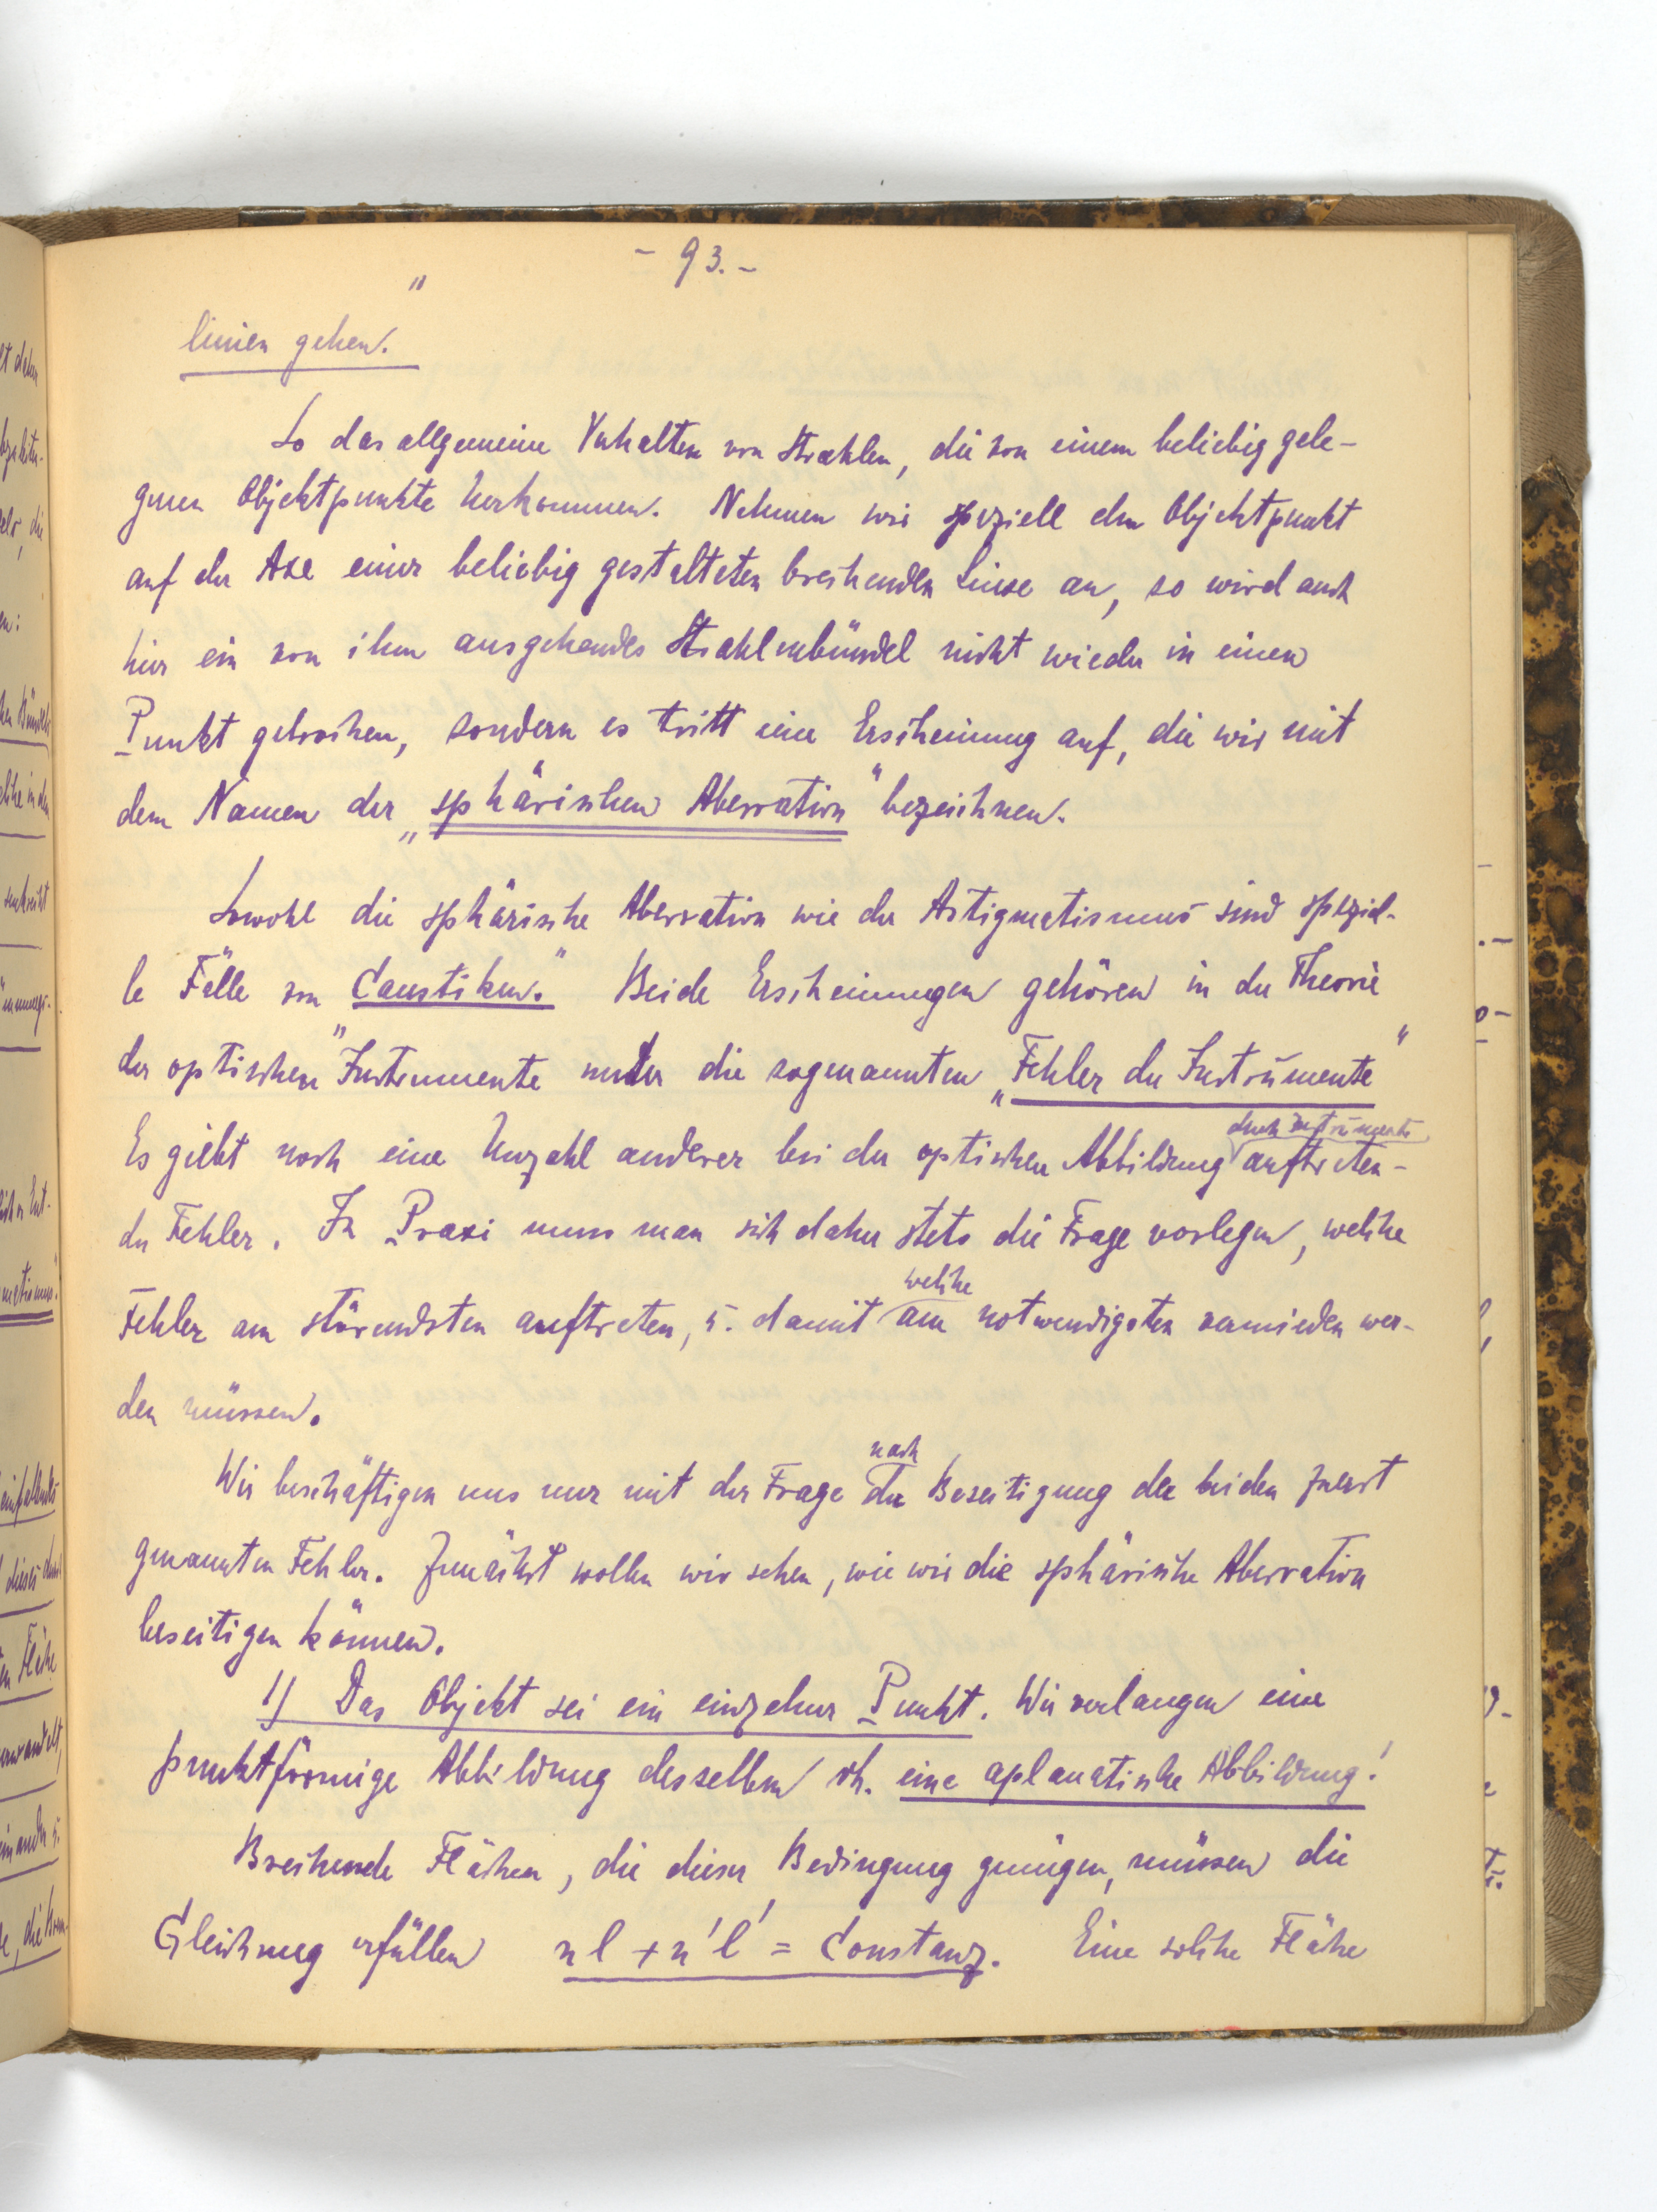 - 93. -
linien gehen."
So das allgemeine Verhalten von Strahlen, die von einem beliebig gele-
genen Objektpunkte herkommen. Nehmen wir speziell den Objektpunkt
auf der Axe einer beliebig gestalteten brechenden Linse an, so wird auch
hier ein von ihm ausgehendes Strahlenbündel nicht wieder in einen
Punkt gebrochen, sondern es tritt eine Erscheinung auf, die wir mit
dem Namen der „sphärischen Aberration" bezeichnen.
Sowohl die sphärische Aberration wie der Astigmatismus sind speziel-
le Fälle von „Caustiken." Beide Erscheinungen gehören in der Theorie
der optischen Instrumente unter die sogenannten „Fehler der Instrumente"
durch Instrumente
Es giebt noch eine Unzahl anderer bei der optischen Abbildung auftreten-
der Fehler. In Praxi muss man sich daher stets die Frage vorlegen, welche
welche
Fehler am störendsten auftreten, u. damit am notwendigsten vermieden wer-
den müssen.
nach
Wir beschäftigen uns nur mit der Frage der Beseitigung der beiden zuerst
genannten Fehler. Zunächst wollen wir sehen, wie wir die sphärische Aberration
beseitigen können.
1) Das Objekt sei ein einzelner Punkt. Wir verlangen eine
punktförmige Abbildung desselben dh. eine aplanatische Abbildung!
Brechende Flächen, die dieser Bedingung genügen, müssen die
Gleichung erfüllen nl + n'l' = Constanz. Eine solche Fläche